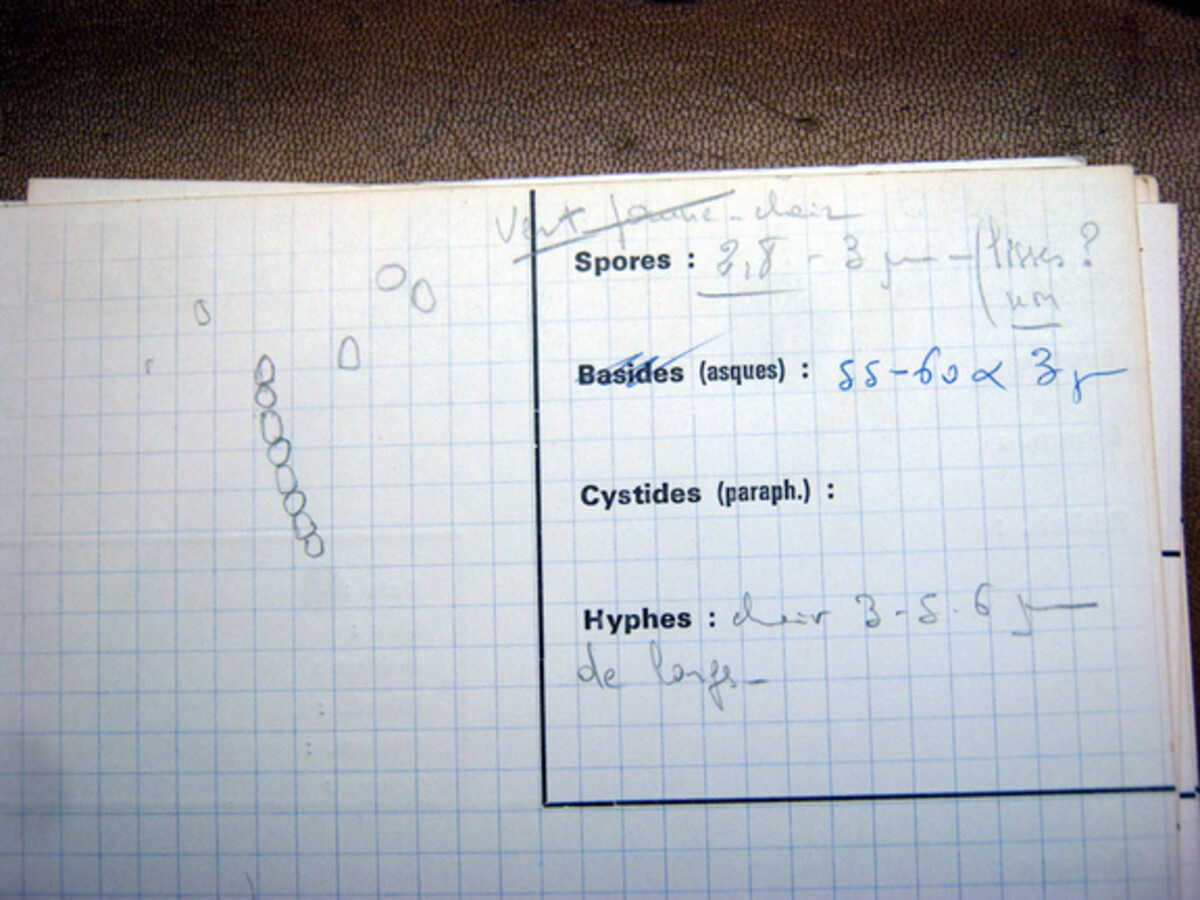 Vert jaune - clair
Spores : 2,8 - 3 µm - (lisses ?
non
Basides (asques) : 55-60 x 3 µ
Cystides (paraph.) :
Hyphes : chair 3-5.6 µ
de large -